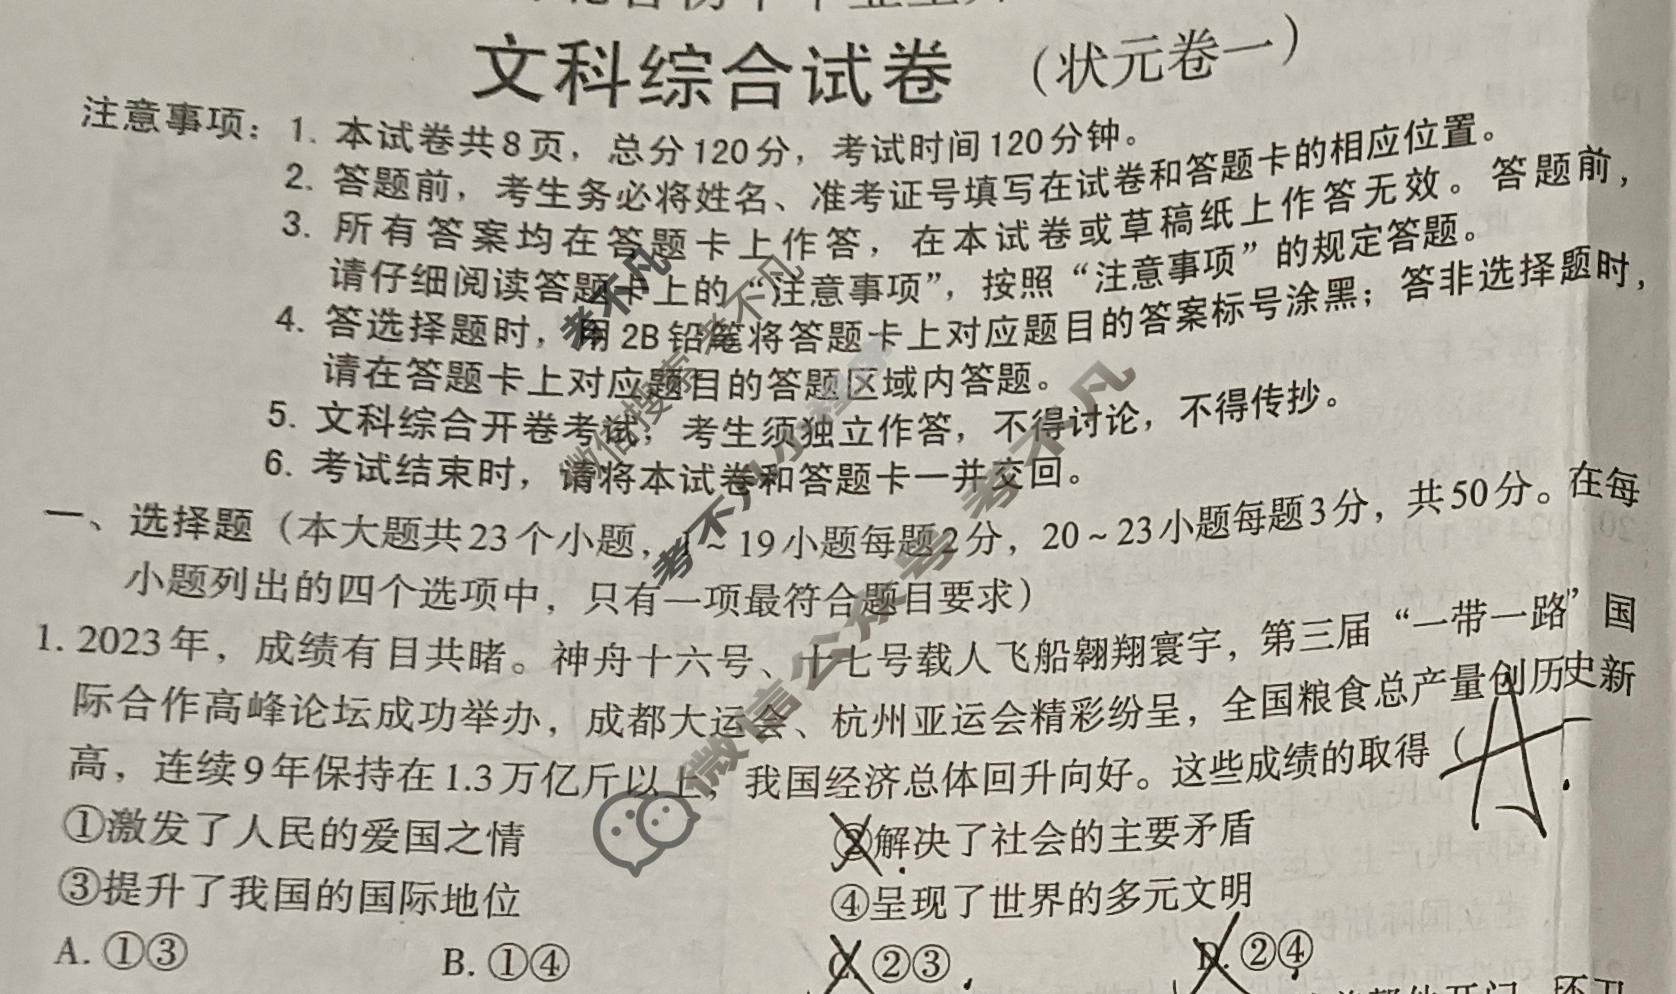 文科综合试卷 (状元卷一)
注意事项：1. 本试卷共8页，总分120分，考试时间120分钟。
2. 答题前，考生务必将姓名、准考证号填写在试卷和答题卡的相应位置。
3. 所有答案均在答题卡上作答，在本试卷或草稿纸上作答无效。答题前，
请仔细阅读答题卡上的“注意事项”，按照“注意事项”的规定答题。
4. 答选择题时，用2B铅笔将答题卡上对应题目的答案标号涂黑；答非选择题时，
请在答题卡上对应题目的答题区域内答题。
5. 文科综合开卷考试，考生须独立作答，不得讨论，不得传抄。
6. 考试结束时，请将本试卷和答题卡一并交回。
一、选择题（本大题共23个小题，1～19小题每题2分，20～23小题每题3分，共50分。在每
小题列出的四个选项中，只有一项最符合题目要求）
1. 2023年，成绩有目共睹。神舟十六号、十七号载人飞船翱翔寰宇，第三届“一带一路”国
际合作高峰论坛成功举办，成都大运会、杭州亚运会精彩纷呈，全国粮食总产量创历史新
高，连续9年保持在1.3万亿斤以上，我国经济总体回升向好。这些成绩的取得（ A
①激发了人民的爱国之情 ②解决了社会的主要矛盾
③提升了我国的国际地位 ④呈现了世界的多元文明
A. ①③ B. ①④ C. ②③ D. ②④
考不凡
微信搜索 考不凡
考不凡小程序
微信公众号 考不凡